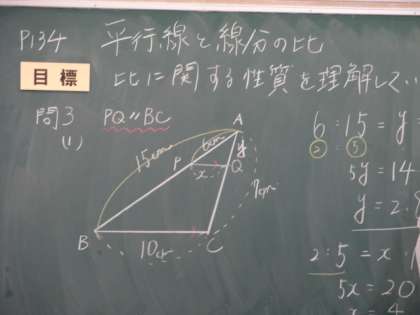 P134 平行線と線分の比
目標 比に関する性質を理解してい
問3 PQ//BC
(1)
A
15cm
6cm
y
P
Q
x
7cm
B
10cm
C
6:15=y=
2:5
5y=14
y=2.8
2:5=x:
5x=20
x=4